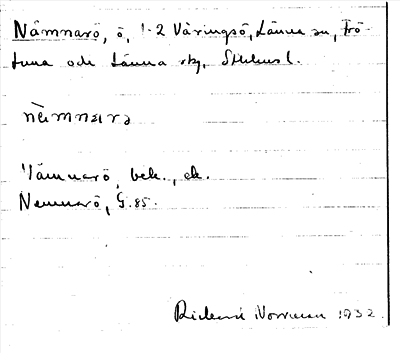 Nämnarö, ö, 1-2 Väringsö, Länna sn, Frö-
tuna och Länna skg, Sthlms l.
nä̀mnarə
Nämnarö, bek., ek.
Nemnarö, G.85.
Rickard Norrman 1932.